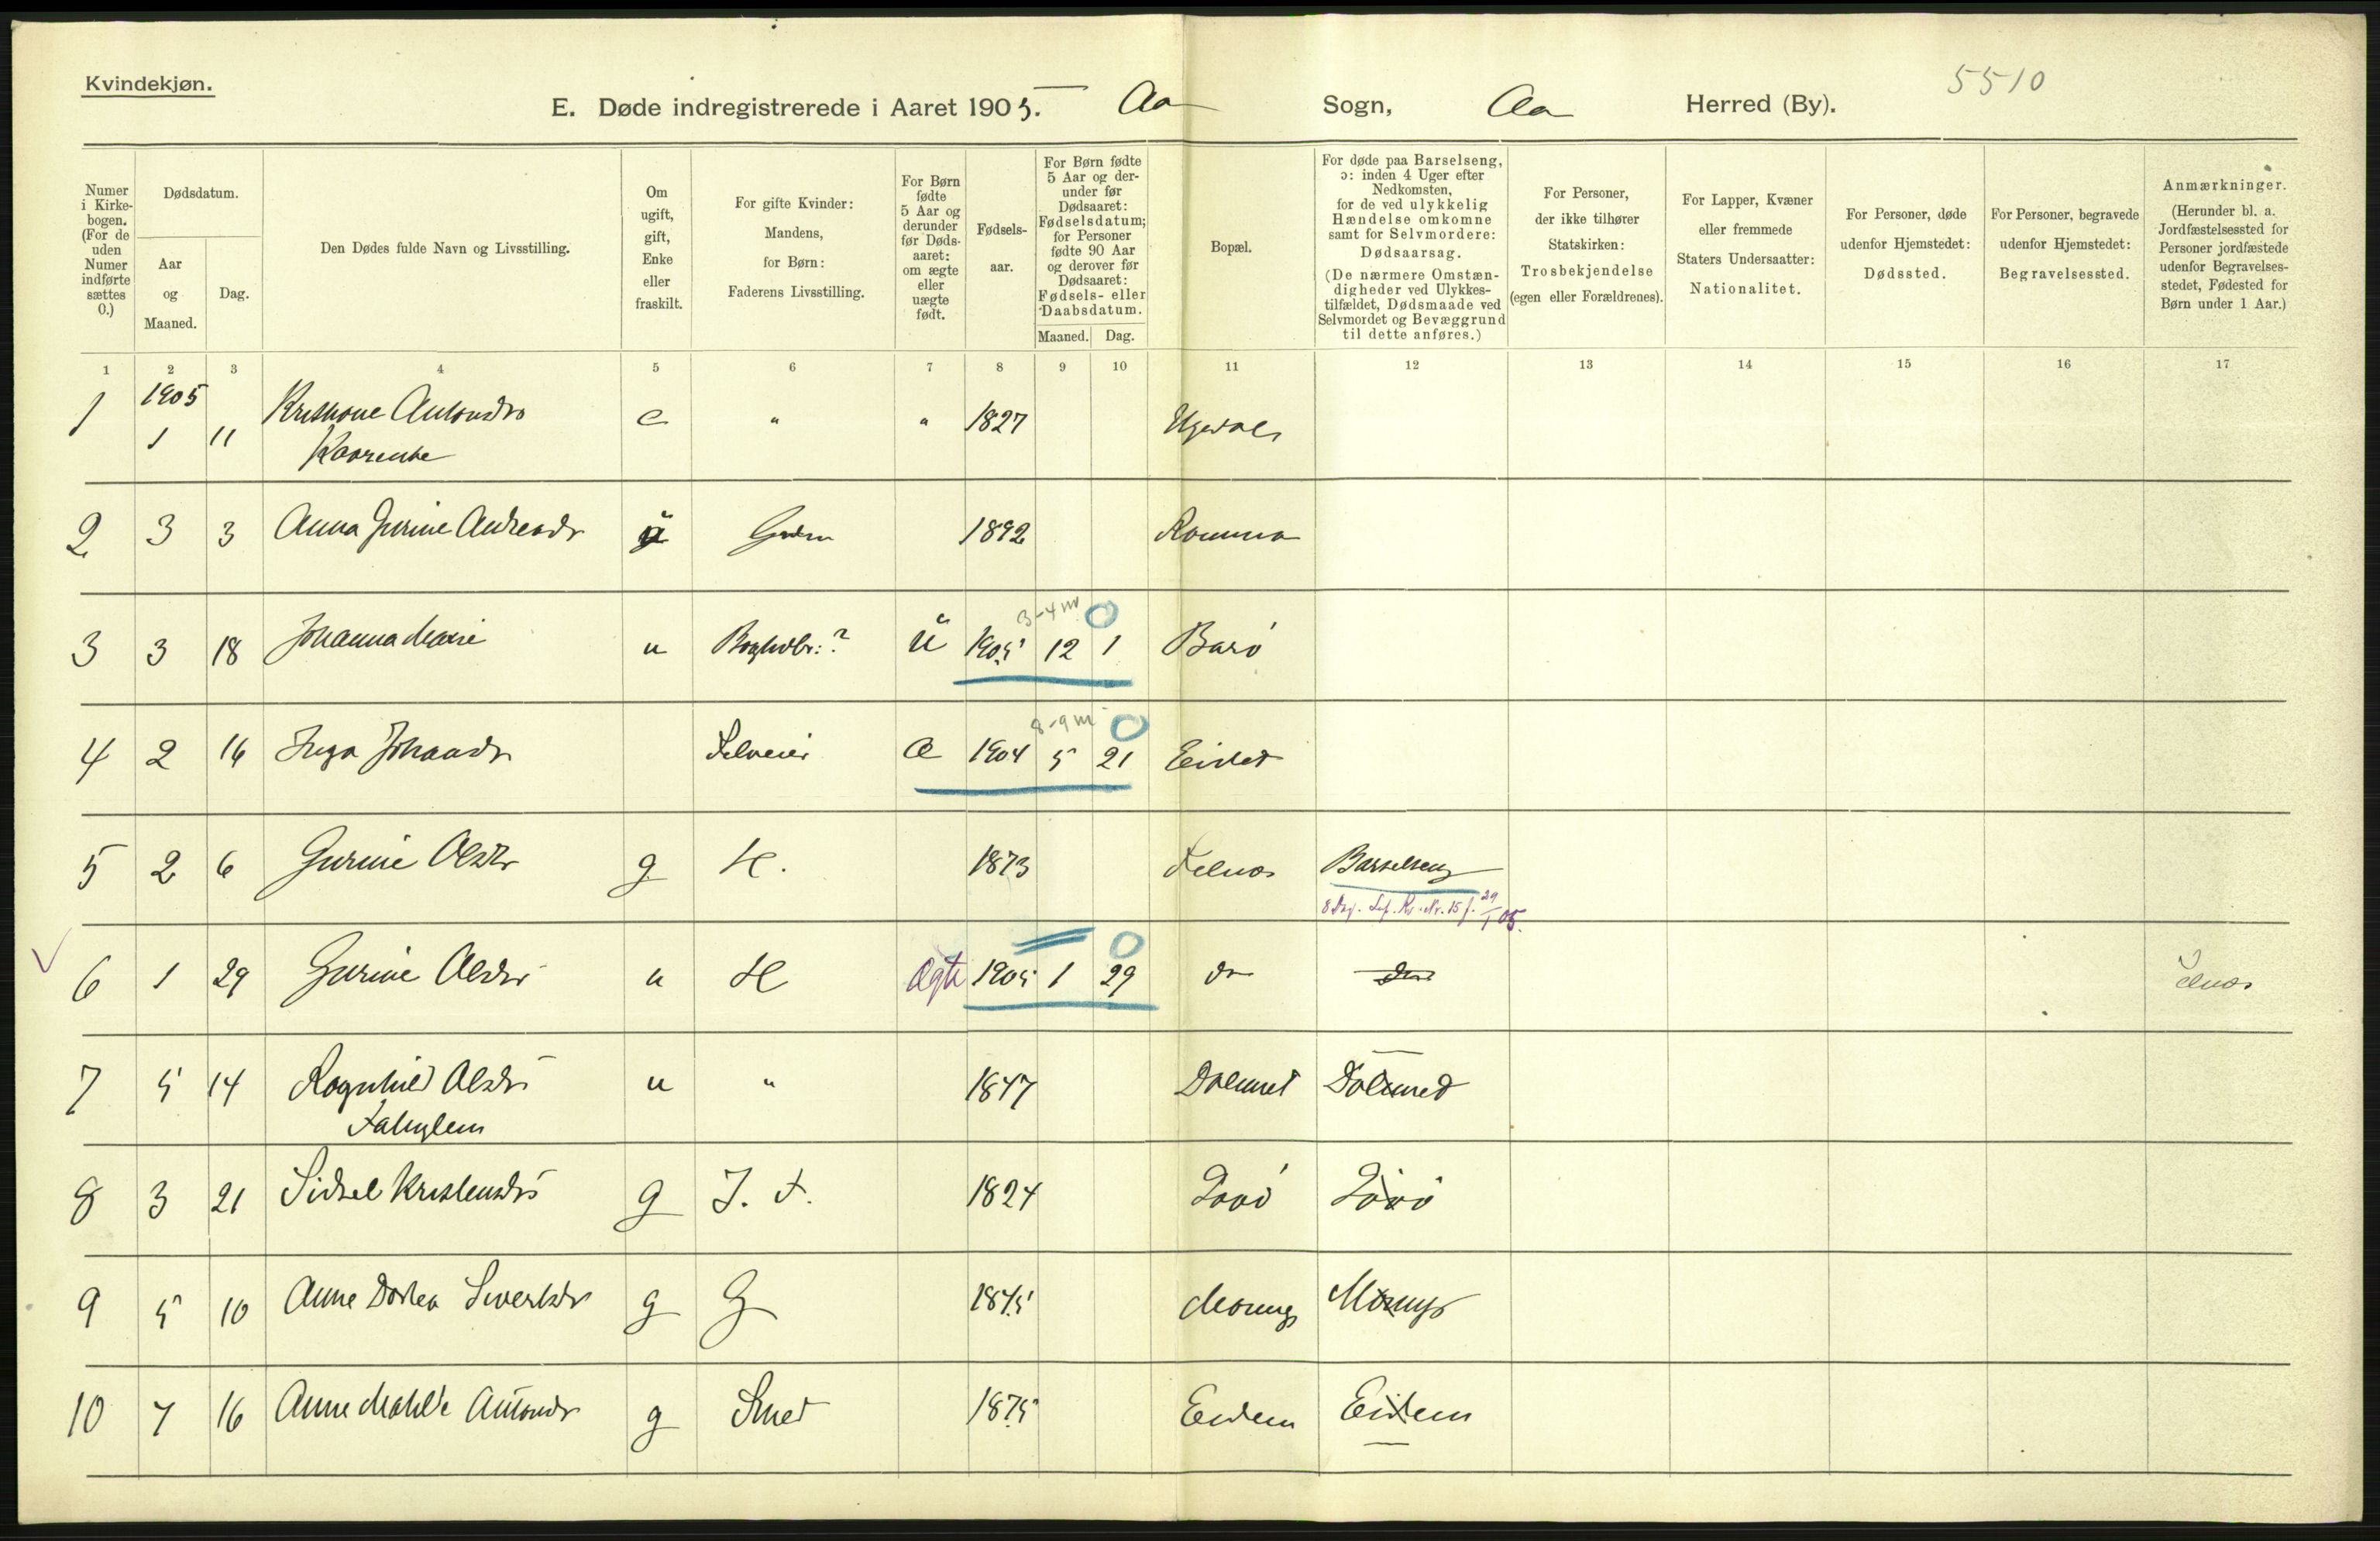 Kvindekjøn.
5510
E. Døde indregistrerede i Aaret 1905. Aa Sogn, Aa Herred (By).
Numer i Kirkebogen. (For de uden Numer indførte sættes 0.)
Dødsdatum.
Aar og Maaned.
Dag.
Den Dødes fulde Navn og Livsstilling.
Om ugift, gift, Enke eller fraskilt.
For gifte Kvinder: Mandens, for Børn: Faderens Livsstilling.
For Børn fødte 5 Aar og derunder før Dødsaaret: om ægte eller uægte født.
Fødselsaar.
For Børn fødte 5 Aar og derunder før Dødsaaret: Fødselsdatum; for Personer fødte 90 Aar og derover før Dødsaaret: Fødsels- eller Daabsdatum.
Maaned. Dag.
Bopæl.
For døde paa Barselseng, ɔ: inden 4 Uger efter Nedkomsten, for de ved ulykkelig Hændelse omkomne samt for Selvmordere: Dødsaarsag.
(De nærmere Omstændigheder ved Ulykkestilfældet, Dødsmaade ved Selvmordet og Bevæggrund til dette anføres.)
For Personer, der ikke tilhører Statskirken: Trosbekjendelse (egen eller Forældrenes).
For Lapper, Kvæner eller fremmede Staters Undersaatter: Nationalitet.
For Personer, døde udenfor Hjemstedet: Dødssted.
For Personer, begravede udenfor Hjemstedet: Begravelsessted.
Anmærkninger.
(Herunder bl. a. Jordfæstelsessted for Personer jordfæstede udenfor Begravelsesstedet, Fødested for Børn under 1 Aar.)
1 2 3 4 5 6 7 8 9 10 11 12 13 14 15 16 17
1905
1 1 11 e " " 1827
2 3 3 Anna Gurine Andreasdr u 1892
3-4 m 0
3 3 18 Johanna Marie u ? u 1905 12 1 Barø
8-9 m 0
4 2 16 Inga Johansdr Selveier Æ 1904 5 21
5 2 6 Gurine Olsdtr g H. 1873 Barselseng
8 29/1 05.
0
6 1 29 Gurine Olsdtr u H Ægte 1905 1 29 do do
7 5 14 Ragnhild Olsdtr u " 1847 Dalumet Dalumed
8 3 21 Sidsel Kristensdtr g J. F. 1824
9 5 10 Anne Dortea Sivertsdtr g G 1845
10 7 16 Anne Antonsdr g Smed 1875 Eidem Eidem